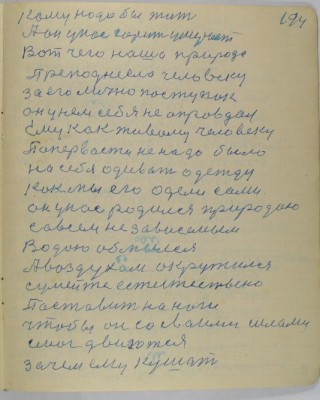 194
Кому надо бы жит
А он у нас горит умирает
Вот чего наша природа
Преподнесла человеку
за его лично поступок
он у нем себя не оправдал
Ему как живому человеку
Попервасти не надо было
на себя одиват одежду
Как мы его одели сами
он у нас родился природаю
савсем независемым
Водою обмылся
А воздухам окрутился
сумейте естистествено
Паставит на ноги
чтобы он со сваими силами
смог двигатся
Зачем ему кушат